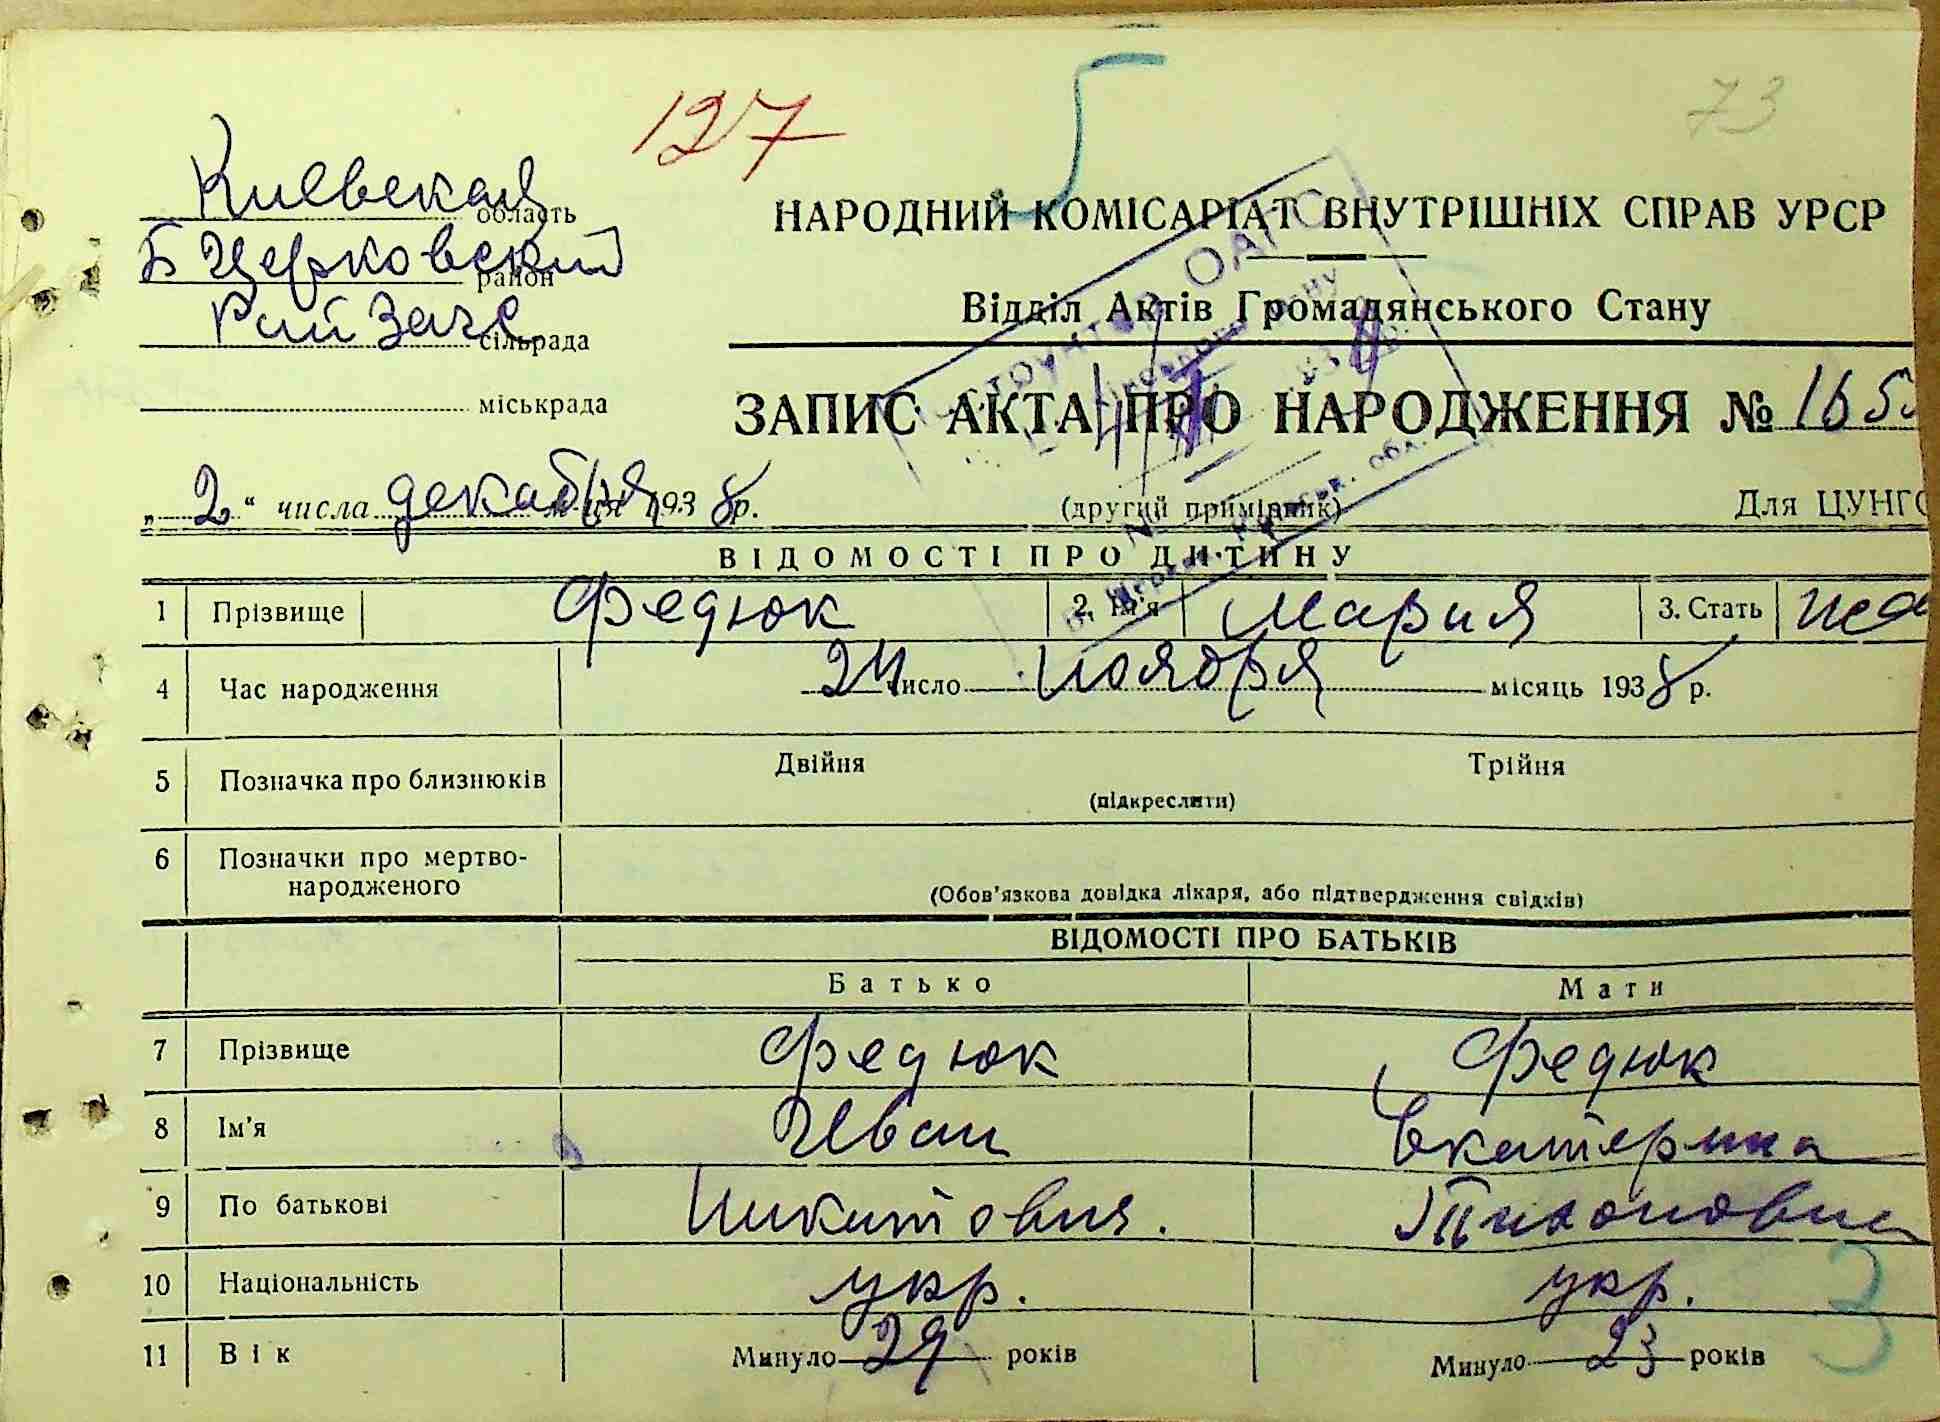 127
5
73
Киевская область
Б Церковский район
Рай Загс сільрада
міськрада
НАРОДНИЙ КОМІСАРІАТ ВНУТРІШНІХ СПРАВ УРСР
Відділ Актів Громадянського Стану
ЗАПИС АКТА ПРО НАРОДЖЕННЯ № 165
„2“ числа декабря м-ця 1938 р.
(другий примірник)
Для ЦУНГО
ВІДОМОСТІ ПРО ДИТИНУ
1 Прізвище Федюк 2. Ім'я Мария 3. Стать
4 Час народження 24 число ноября місяць 1938 р.
5 Позначка про близнюків Двійня Трійня
(підкреслити)
6 Позначки про мертво-
народженого
(Обов'язкова довідка лікаря, або підтвердження свідків)
ВІДОМОСТІ ПРО БАТЬКІВ
Батько Мати
7 Прізвище Федюк Федюк
8 Ім'я Иван Екатерина
9 По батькові Никитович. Тихоновна
10 Національність укр. укр.
11 Вік Минуло 29 років Минуло 23 років
3